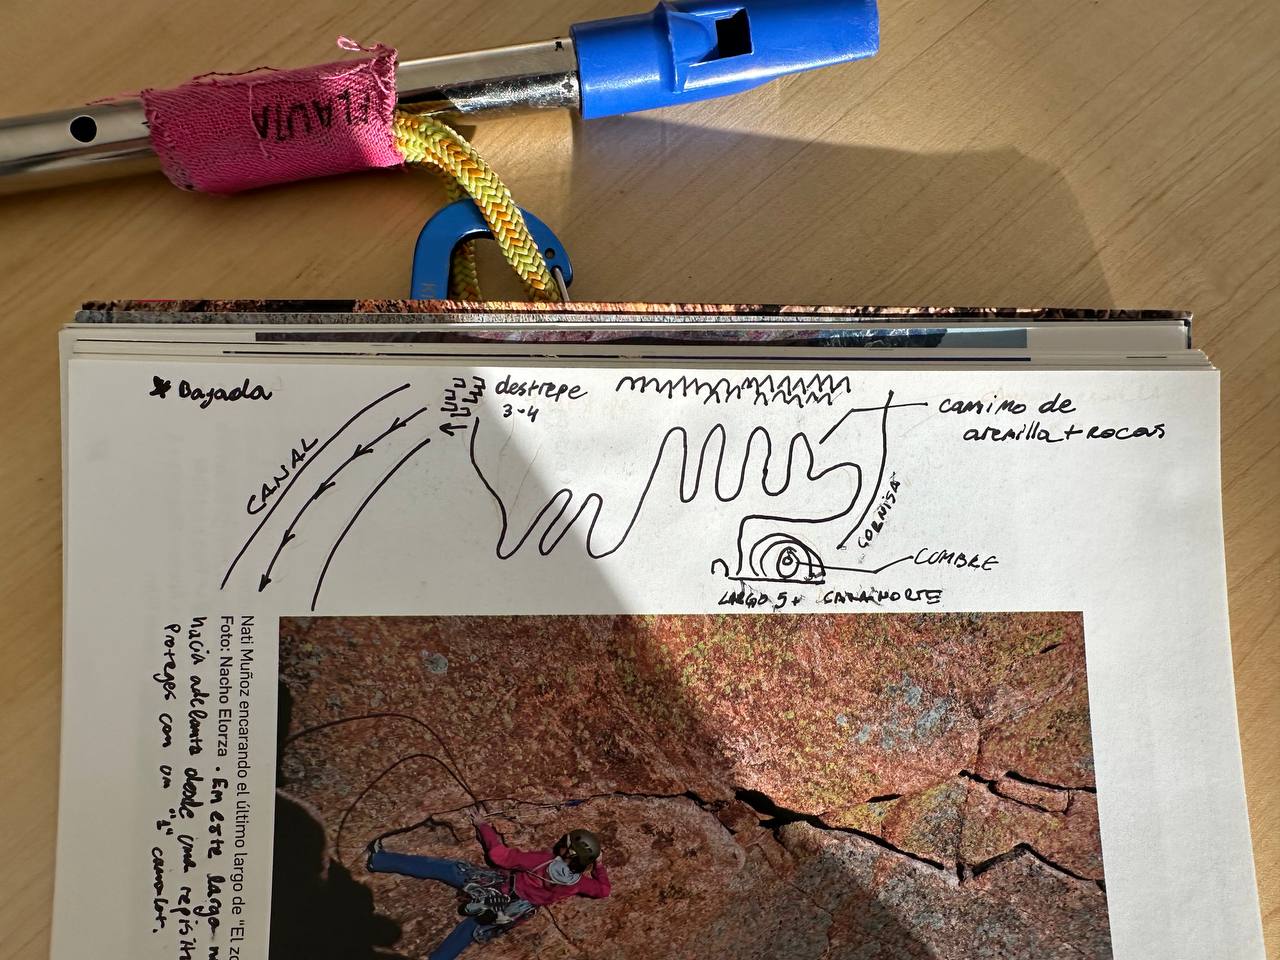 FLAUTA
* Bajada
destrepe
3-4
camino de
arenilla + rocas
CANAL
CORNISA
CUMBRE
LARGO 5+ CARA NORTE
Nati Muñoz encarando el último largo de "El zo
Foto: Nacho Elorza. En este largo
hacia adelante desde una repisit
Proteges con un "1" camalot.